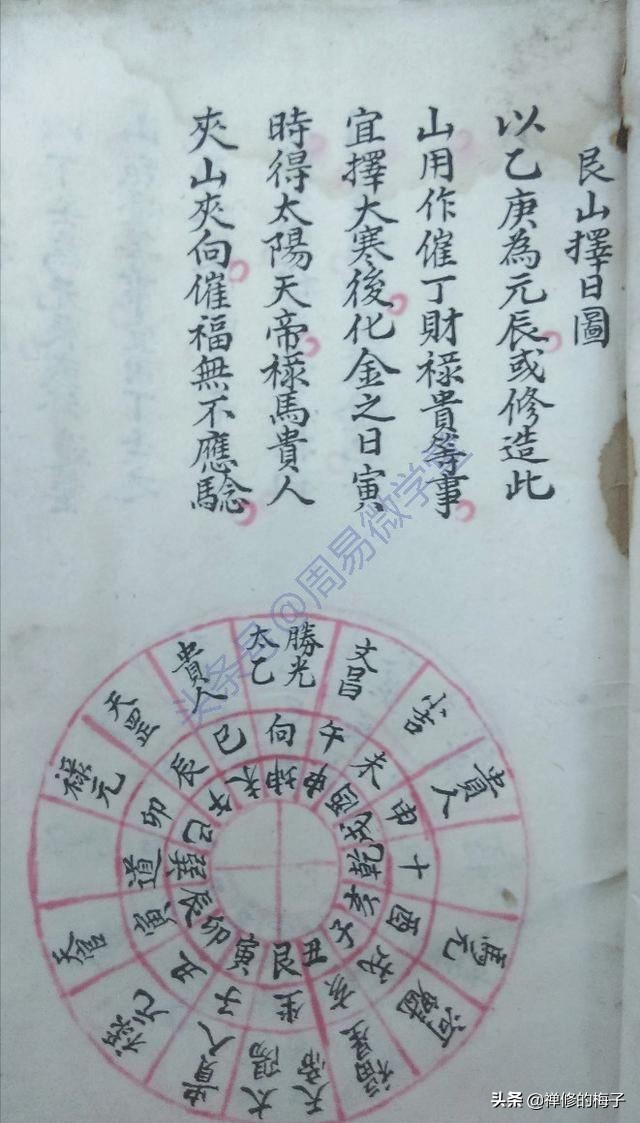 艮山擇日圖
以乙庚為元辰或修造此
山用作催丁財祿貴等事
宜擇大寒後化金之日寅
時得太陽天帝祿馬貴人
夾山夾向催福無不應騐
勝光
太乙
文昌
小吉
貴人
馬元
河魁
福星
天帝
太陽
貴人
祿元
天官
祿元
天罡
貴人
向
午
未
申
十
酉
戌
亥
坐
子
丑
寅
道
卯
辰
巳
坤
申
酉
戌
乾
亥
子
丑
艮
寅
卯
辰
巽
巳
午
未
头条号@周易微学堂
头条 @禅修的梅子